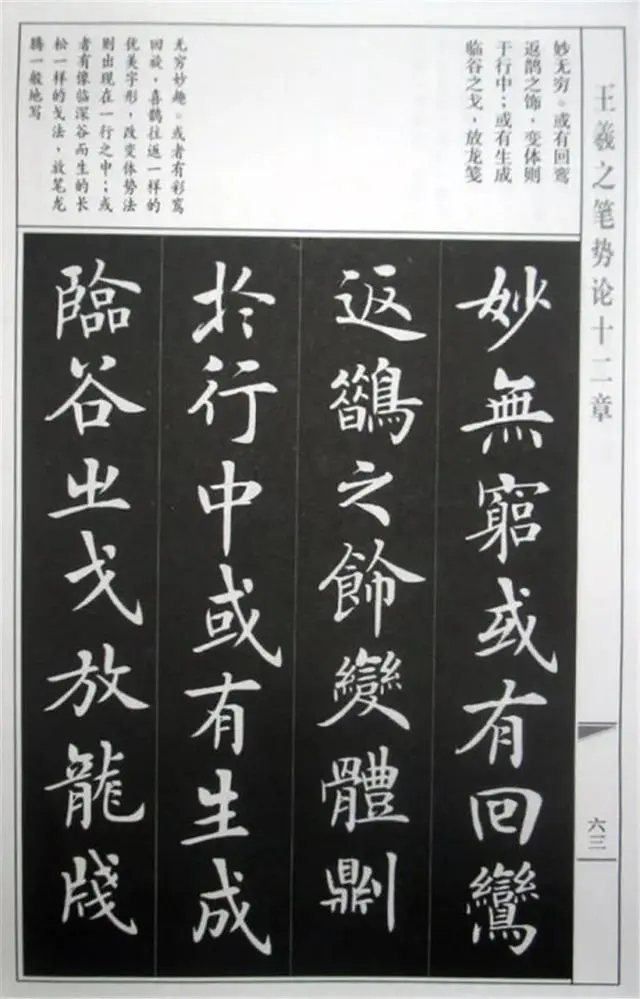 王羲之笔势论十二章
妙无穷。或有回鸾
返鹊之饰，变体则
于行中；或有生成
临谷之戈，放龙笺
无穷妙趣。或者有彩鸾
回旋，喜鹊往返一样的
优美字形，改变体势法
则出现在一行之中；或
者有像临深谷而生的长
松一样的戈法，放笔龙
腾一般地写
妙無窮或有回鸞
返鵲之飾變體則
於行中或有生成
臨谷之戈放龍牋
六三